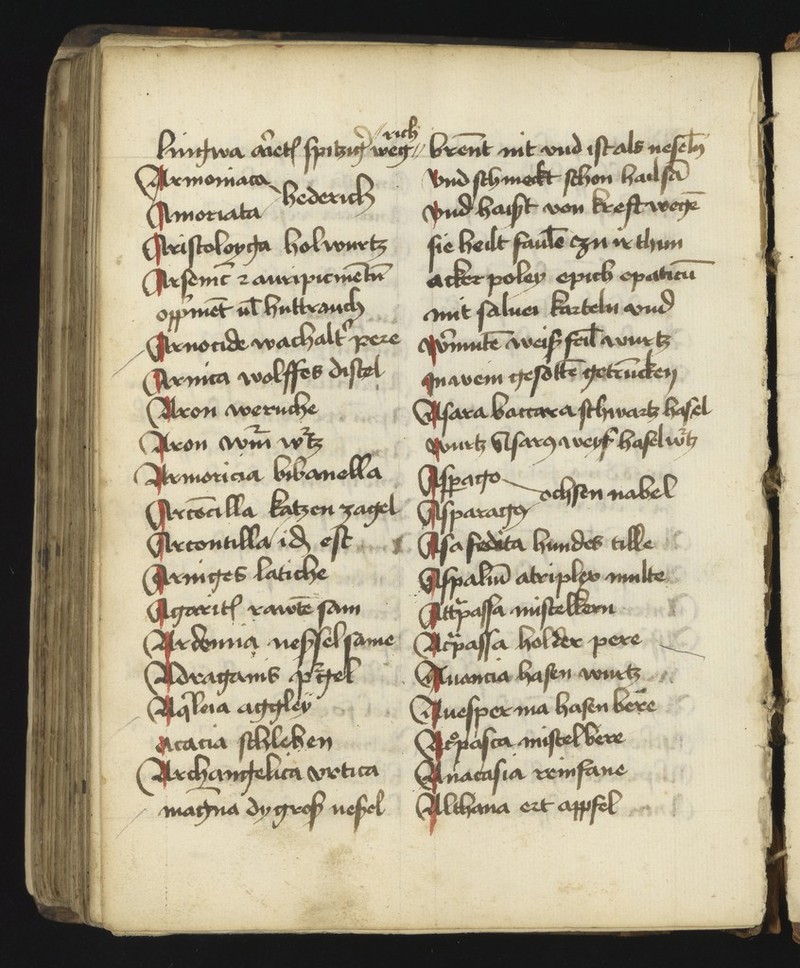 lingwa arietis spitzig wegrich
Armoniaca
Amoriata hederich
Aristoloyga holwurtz
Arsenic auripicmentu
oppment vel huttrauch
Arnocide wachalter pere
Arnica wolffes distel
Aron weruche
Aron wurm wurtz
Armoricia bibanella
Arcencilla katzen zagel
Arcontilla id est
Arniges latiche
Agaritl rawte sam
Ardonnia nessel same
Adragantis
Aqleia aggley
Acacia schlehen
Archangelica vrtica
magna dy gross nessel
brent nit vnd ist als neseln
vnd schmeckt schon hailsam
vnd haist von kreft wegen
sie heilt faule czu irthun
acker poley epich epaticum
mit saluei karteln vnd
weiss wurtz
In wein gesotten getruncken
Asara baccara schwartz hasel
wurtz Asarum weyss haselwurtz
Asparago
Asparagus ochsen nabel
Asa fedita hundes tille
Aspaltum atriplex multe
Attpassa mistelkern
Atrpassa holder pere
Auancia hasen wurtz
Auesperma hasen bere
Atrpasca mistelbere
Anacasia reinfane
Althana ert appfel